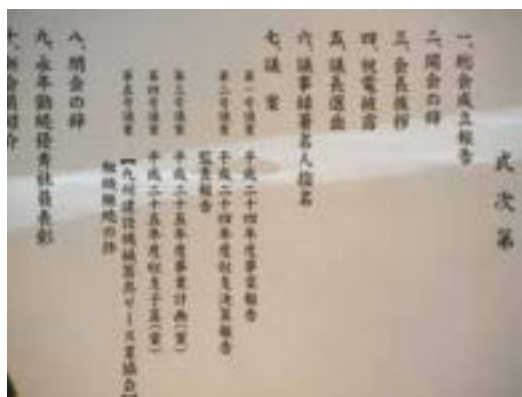 式次第
一、総会成立報告
二、開会の辞
三、会長挨拶
四、祝電披露
五、議長選出
六、議事録署名人指名
七、議案
第一号議案 平成二十四年度事業報告
第二号議案 平成二十四年度収支決算報告
監査報告
第三号議案 平成二十五年度事業計画(案)
第四号議案 平成二十五年度収支予算(案)
第五号議案 【九州建設機械器具リース業協会】
組織継続の件
八、閉会の辞
九、永年勤続優秀社員表彰
十、新会員紹介